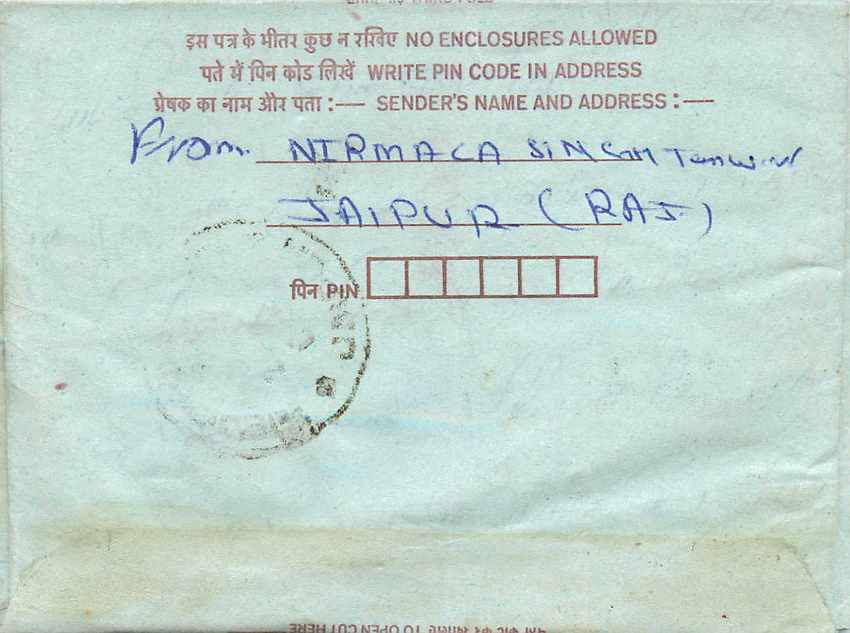 इस पत्र के भीतर कुछ न रखिए NO ENCLOSURES ALLOWED
पते में पिन कोड लिखें WRITE PIN CODE IN ADDRESS
प्रेषक का नाम और पता :— SENDER'S NAME AND ADDRESS :—
From. NIRMALA SINGH
JAIPUR (RAJ.)
पिन PIN
TO OPEN CUT HERE